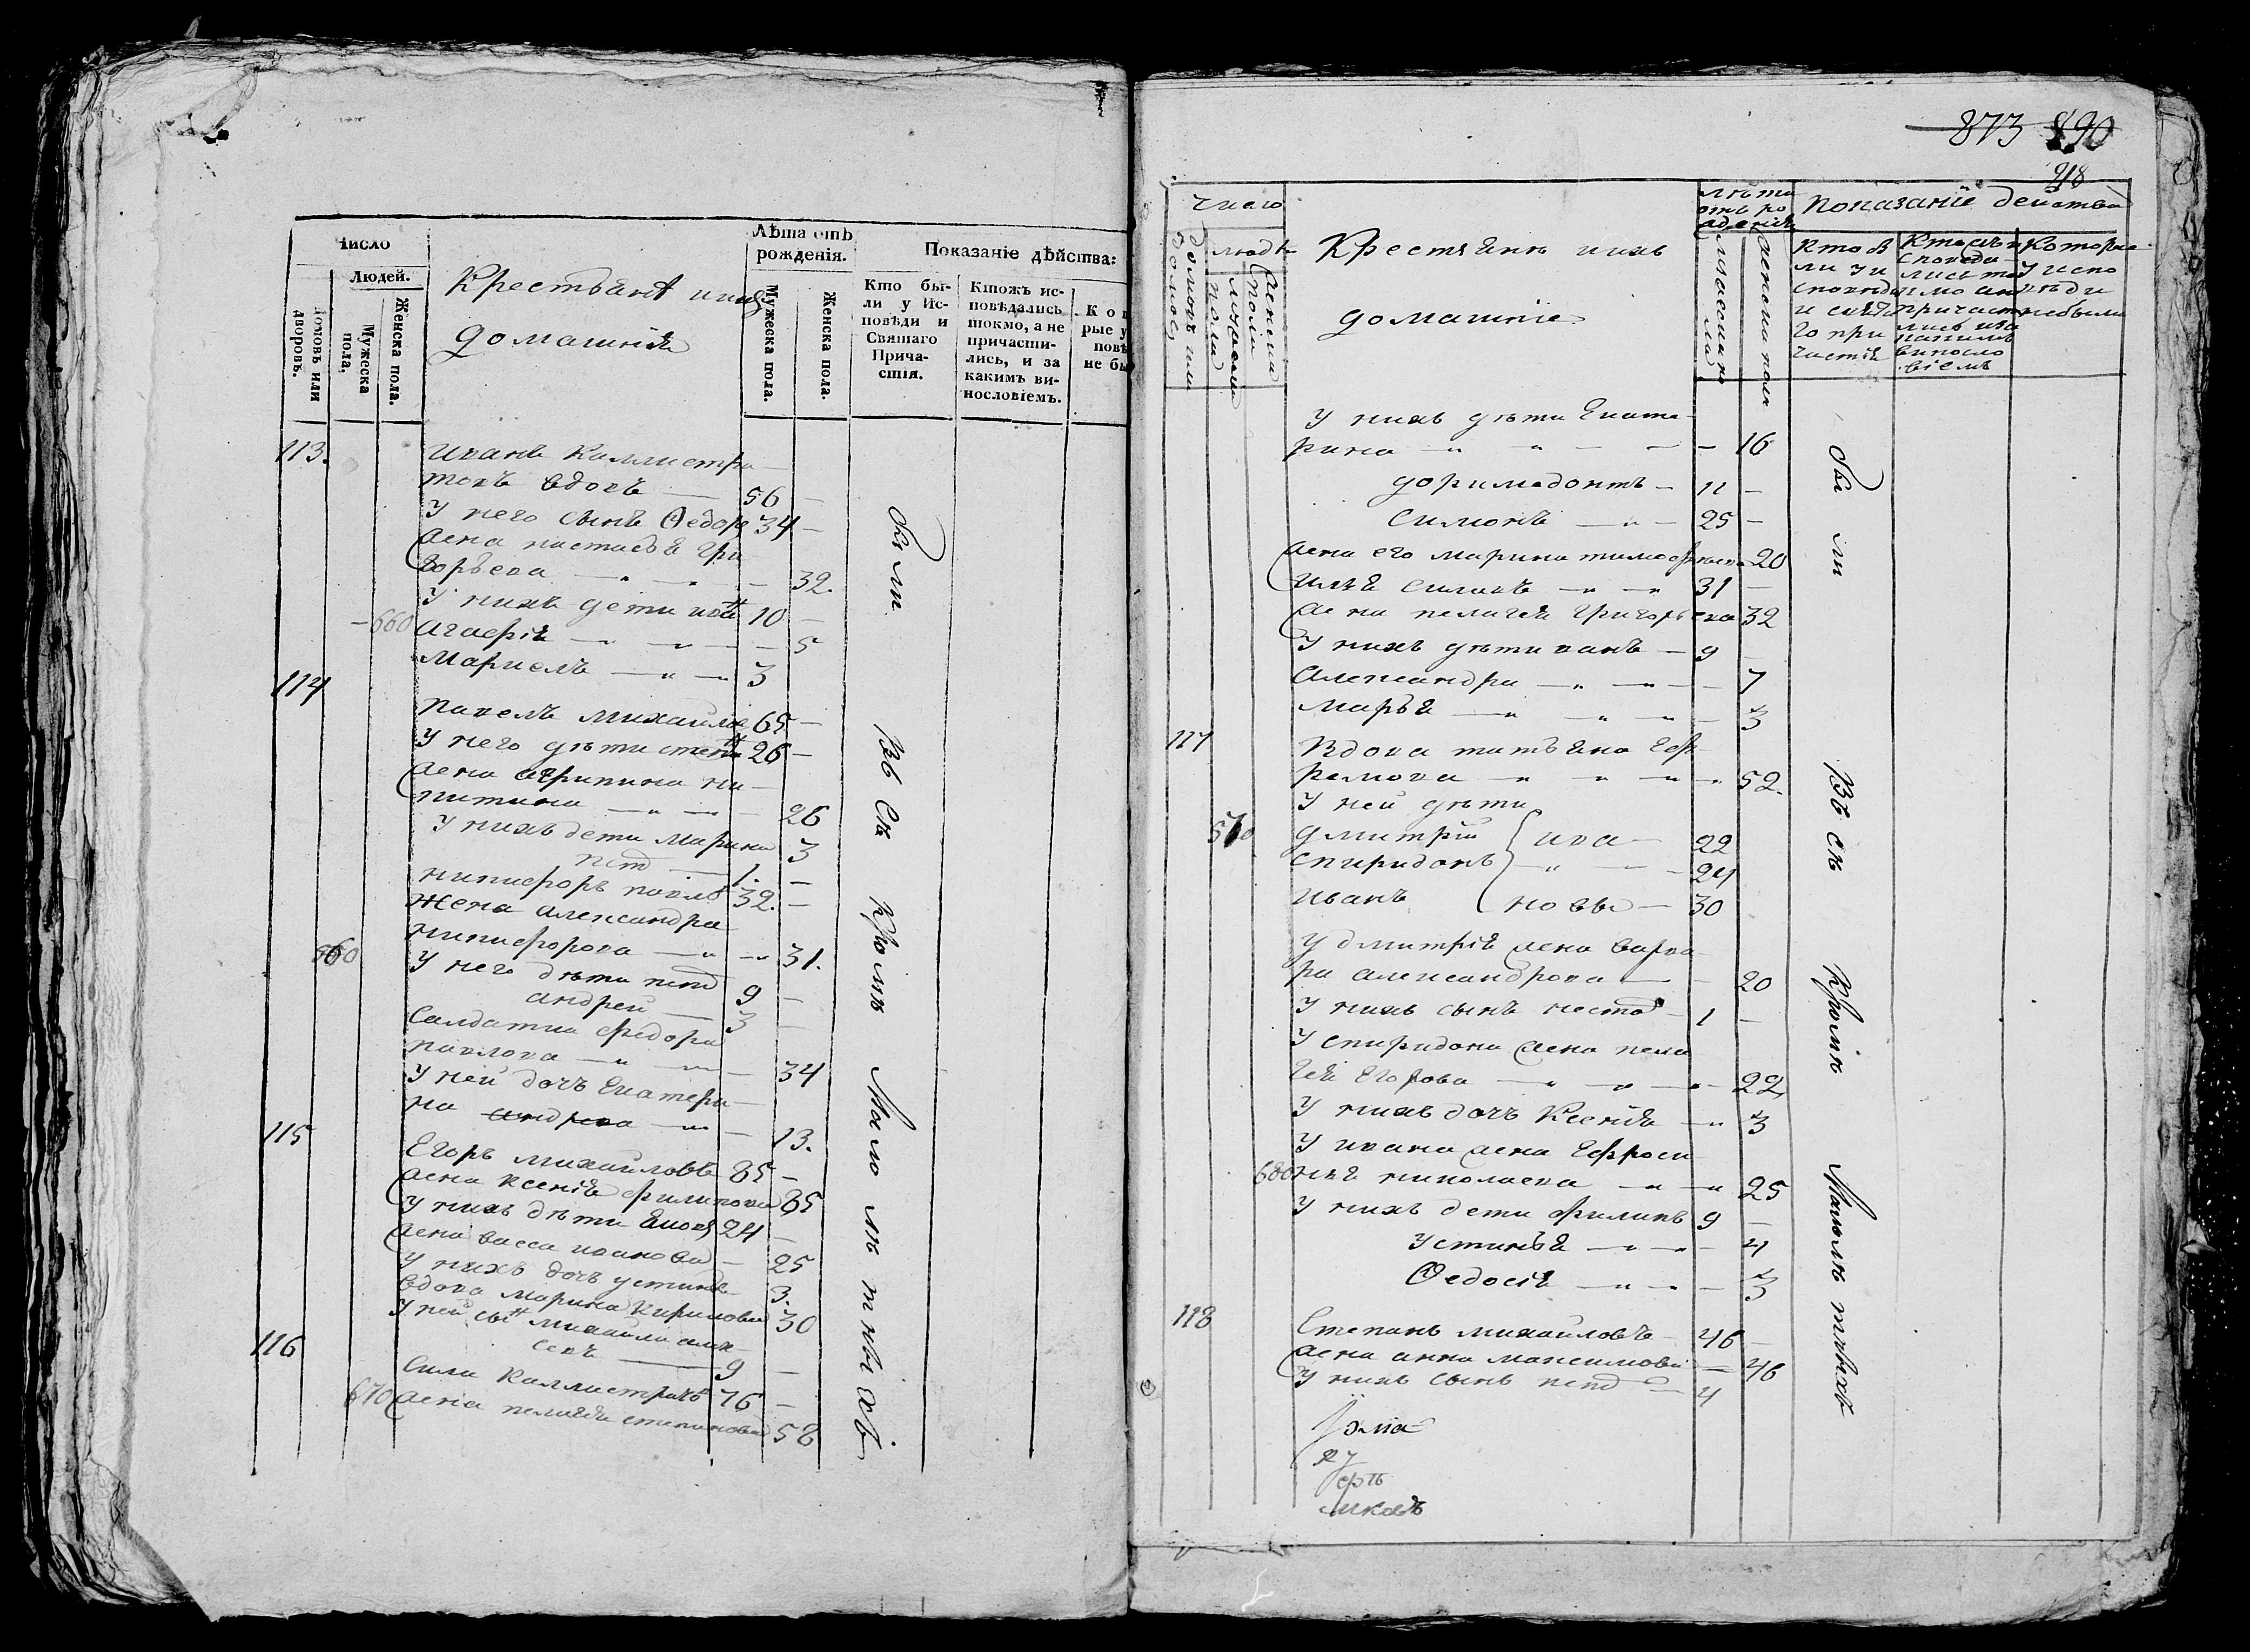 Число
Людей.
Домовъ или дворовъ.
Мужеска пола.
Женска пола.
Крестьянѣ ихъ
домашнія
Лѣта отъ рожденія.
Мужеска пола.
Женска пола.
Показаніе дѣйства:
Кто бы-
ли у Ис-
повѣди и
Святаго
Прича-
стія.
Ктожъ ис-
повѣдались
токмо, а не
причасти-
лись, и за
какимъ ви-
нословіемъ.
113.
Иванъ Каллистра
товъ вдовъ — 56 —
У него сынъ Ѳедоръ 34 —
Жена настасья Гри
горьева — 32.
У нихъ дети ива 10 —
660 Агафія — 5
Мариемъ — 3
114
Павелъ Михайло 65 —
У него дѣти степа 26 —
Жена агрипина ни
китина — 26
У нихъ дети Марина 3
петр — 1. —
Никифоръ павло 32. —
Жена Александра
Никифорова — 31.
560 У него дѣти петр 9 —
андрей — 3 —
Салдатка федора
павлова — 34
У ней дочъ Екатери
на андрева — 13.
115
Егоръ Михайловъ 85 —
Жена Ксенія филипова 85
У нихъ дѣти Яковъ 24 —
Жена васса иванова — 25
У нихъ дочъ устинья 3.
Вдова Марина Кирилова 30
У ней сынъ Михайли алек
сеевъ — 9 —
116
Сила Каллистратовъ 76 —
670 Жена пелагея степанова 58
были
Всѣ
Кромѣ
Малолѣтныхъ
873 890
918
Число
людей
домовъ или
мужеска пола
женска пола
Крестьянѣ ихъ
домашніе
лѣта
отъ ро
жденія
мужеска по
ла
женска пола
показаніе действа
Кто бы
ли у и
споведи
и свята
го при
частія
Кто жъ и
споведа
лись то
кмо а не
причаст
лись и за
какимъ
винсло
віемъ
Которые
у испо
вѣди
небыли
У нихъ дѣти Екате
рина — 16
доримедонтъ — 11 —
Симонъ — 25 —
Жена его Марина тимофеева 20
Илья Силовъ — 31 —
Жена пелагея Григорьева 32
У нихъ дѣти иванъ — 9
Александра — 7
Марья — 3
117
Вдова татьяна Еф
ремова — 52.
У ней дѣти
570 дмитрій ива — 22
Спиридонъ — 24
Иванъ новы — 30
У дмитрія жена варва
ра александрова — 20
У нихъ сынъ нестор — 1 —
У Спиридона жена пела
гея Егорова — 22
У нихъ дочъ Ксенія — 3
У ивана жена Ефроси
680 нья николаева — 25
У нихъ дети филипъ 9 —
Устинья — 4
Ѳедосія — 3
118
Степанъ Михайловъ — 46 —
Жена анна Максимова — 46
У нихъ сынъ петр — 4
были
Всѣ
Кромѣ
Малолѣтныхъ